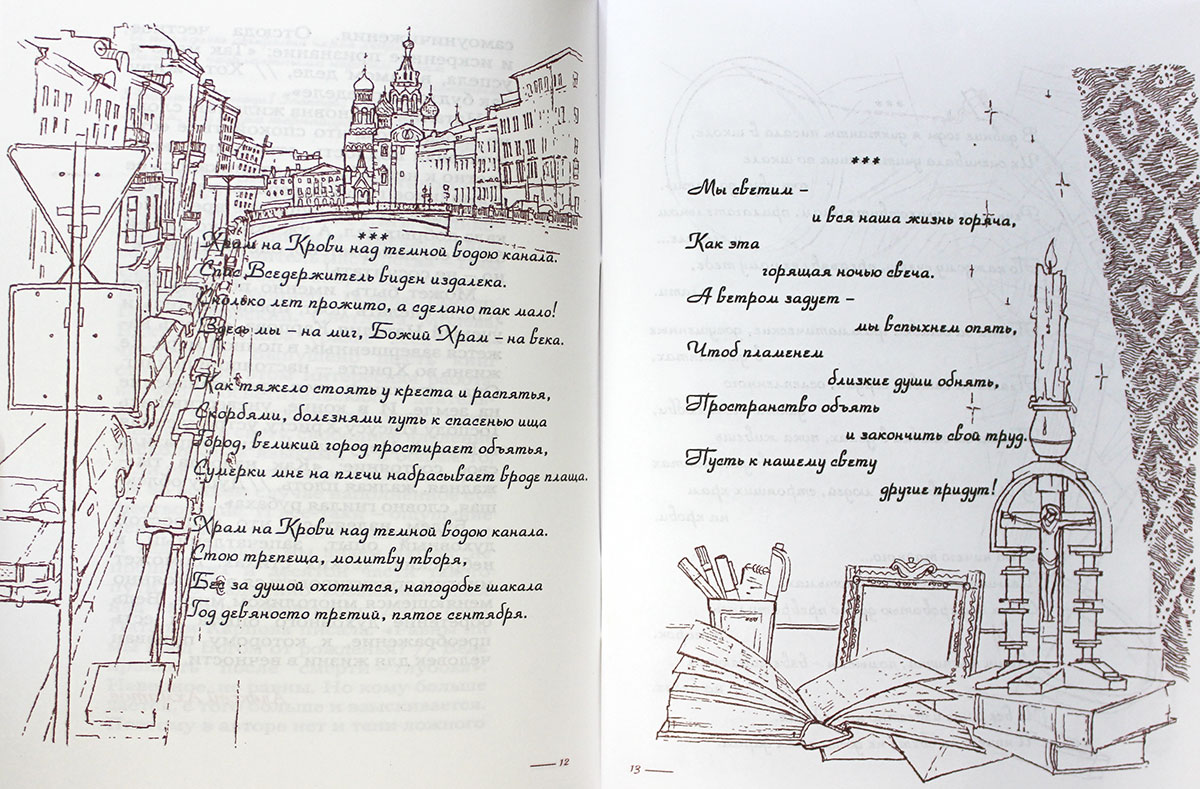 ***
Храм на Крови над темной водою канала.
Спас Вседержитель виден издалека.
Сколько лет прожито, а сделано так мало!
Здесь мы – на миг, Божий Храм – на века.
Как тяжело стоять у креста и распятья,
Скорбями, болезнями путь к спасенью ища
Город, великий город простирает объятья,
Сумерки мне на плечи набрасывает вроде плаща.
Храм на Крови над темной водою канала.
Стою трепеща, молитву творя,
Бес за душой охотится, наподобье шакала
Год девяносто третий, пятое сентября.
12
***
Мы светим –
и вся наша жизнь горяча,
Как эта
горящая ночью свеча.
А ветром задует –
мы вспыхнем опять,
Чтоб пламенем
близкие души обнять,
Пространство объять
и закончить свой труд.
Пусть к нашему свету
другие придут!
13